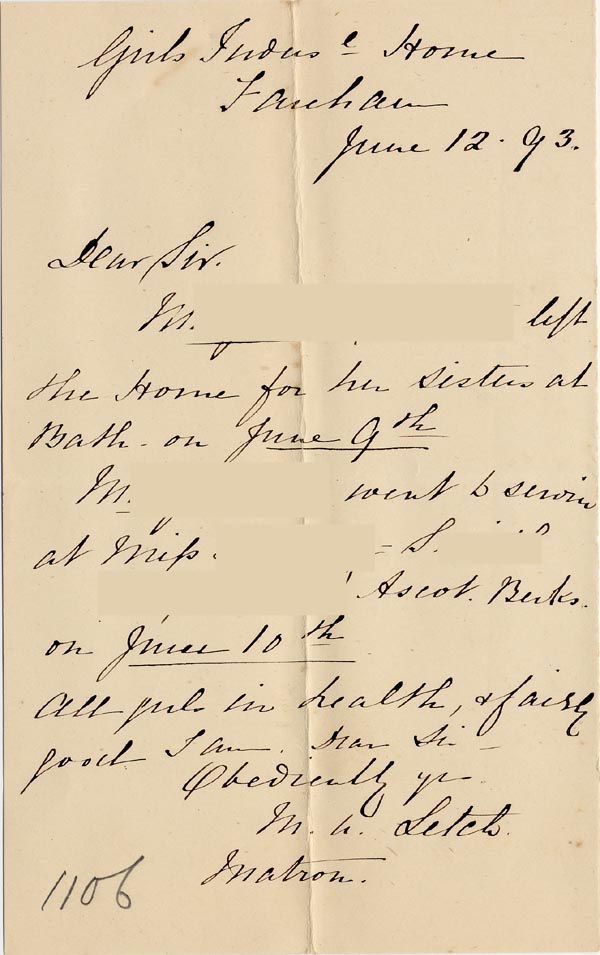 Girls Indus.l Home
Fareham
June 12. 93.
Dear Sir.
M. left
the Home for her Sisters at
Bath - on June 9th
M. went to service
at Miss - S.
Ascot. Berks.
on June 10th
All girls in health, & fairly
good I am. Dear Sir -
Obediently yrs
M. A. Letch.
Matron.
1106